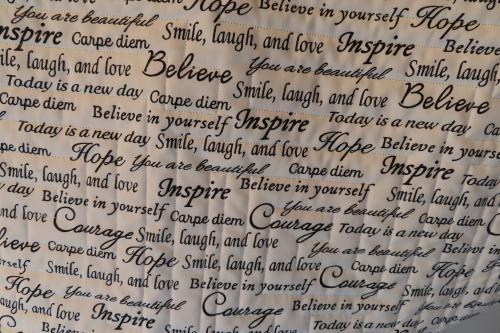 Believe in yourself Hope
You are beautiful Smile, laugh, and love Inspire Believe
Inspire Carpe diem You are beautiful Smile, laugh,
laugh, and love Believe Smile, laugh, and love Believe
Today is a new day Carpe diem Today is a new day
Carpe diem Believe in yourself Inspire Hope Believe in yourself
Today is a new day Smile, laugh, and love Carpe diem Inspire Today
diem Hope You are beautiful Believe in yourself Smile, laugh,
Smile, laugh, and love Inspire You are beautiful Carpe diem
day Believe in yourself Carpe diem Courage Today is a new day
and love Courage Smile, laugh, and love You are beautiful Believe in
Believe Carpe diem Hope Smile, laugh, and love Carpe diem Hope
Smile, laugh, and love Courage Smile, laugh, and
Hope You are beautiful Courage Believe in yourself You are beautiful
laugh, and love Inspire Smile, laugh, and love Today is a new day Carpe